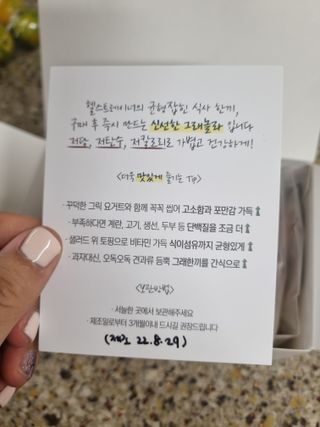 헬스트레이너의 균형잡힌 식사 한끼,
구매 후 즉시 만드는 신선한 그래놀라 입니다
저당, 저탄수, 저칼로리로 가볍고 건강하게!
<더욱 맛있게 즐기는 Tip>
· 꾸덕한 그릭 요거트와 함께 꼭꼭 씹어 고소함과 포만감 가득
· 부족하다면 계란, 고기, 생선, 두부 등 단백질을 조금 더
· 샐러드 위 토핑으로 비타민 가득 식이섬유까지 균형있게
· 과자대신, 오독오독 견과류 듬뿍 그래한끼를 간식으로
<보관방법>
· 서늘한 곳에서 보관해주세요
· 제조일로부터 3개월이내 드시길 권장드립니다
(제조 22.8.29)